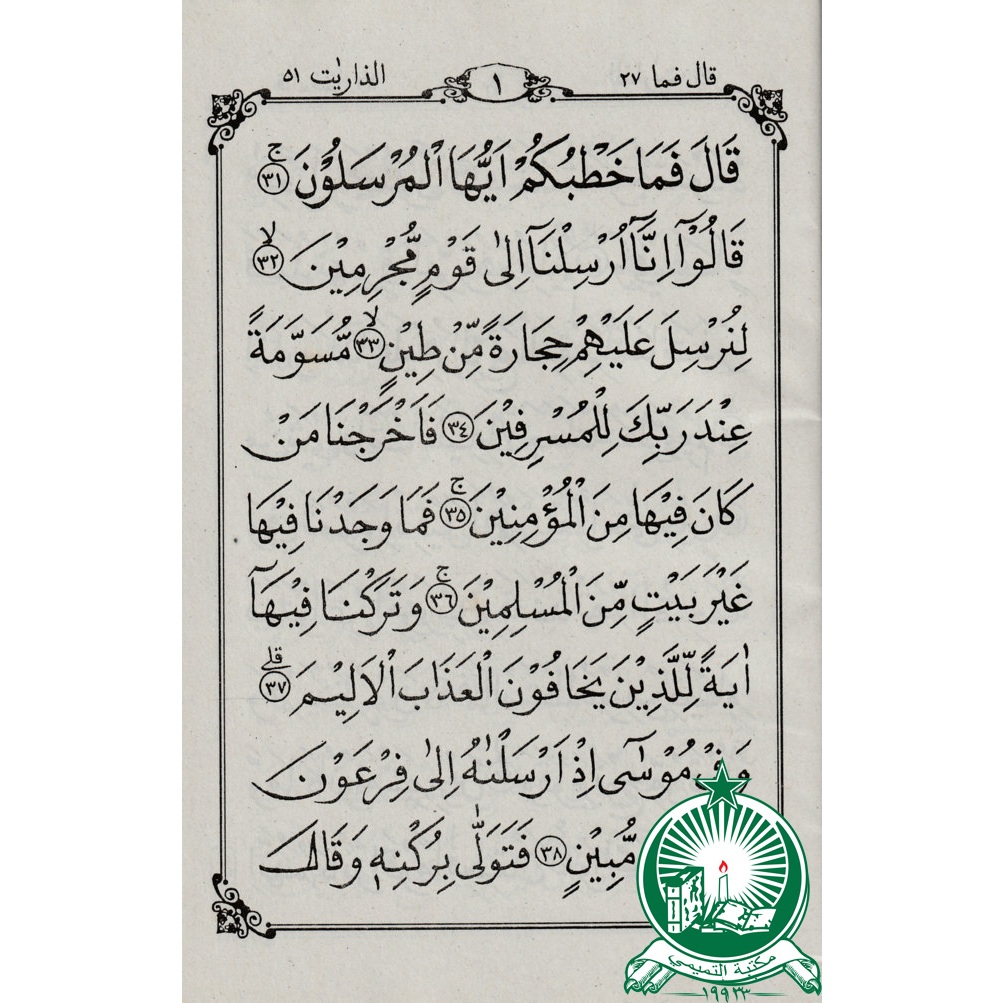 قال فما ٢٧ ١ الذاريٰت ٥١
قَالَ فَمَا خَطْبُكُمْ اَيُّهَا الْمُرْسَلُوْنَ ۚ ٣١
قَالُوْٓا اِنَّآ اُرْسِلْنَآ اِلٰى قَوْمٍ مُّجْرِمِيْنَ ۙ ٣٢
لِنُرْسِلَ عَلَيْهِمْ حِجَارَةً مِّنْ طِيْنٍ ۙ ٣٣ مُّسَوَّمَةً
عِنْدَ رَبِّكَ لِلْمُسْرِفِيْنَ ٣٤ فَاَخْرَجْنَا مَنْ
كَانَ فِيْهَا مِنَ الْمُؤْمِنِيْنَ ۚ ٣٥ فَمَا وَجَدْنَا فِيْهَا
غَيْرَ بَيْتٍ مِّنَ الْمُسْلِمِيْنَ ۚ ٣٦ وَتَرَكْنَا فِيْهَآ
اٰيَةً لِّلَّذِيْنَ يَخَافُوْنَ الْعَذَابَ الْاَلِيْمَ ۗ ٣٧
وَفِيْ مُوْسٰٓى اِذْ اَرْسَلْنٰهُ اِلٰى فِرْعَوْنَ
مُّبِيْنٍ ٣٨ فَتَوَلّٰى بِرُكْنِهٖ وَقَالَ
مكتبة التميمي